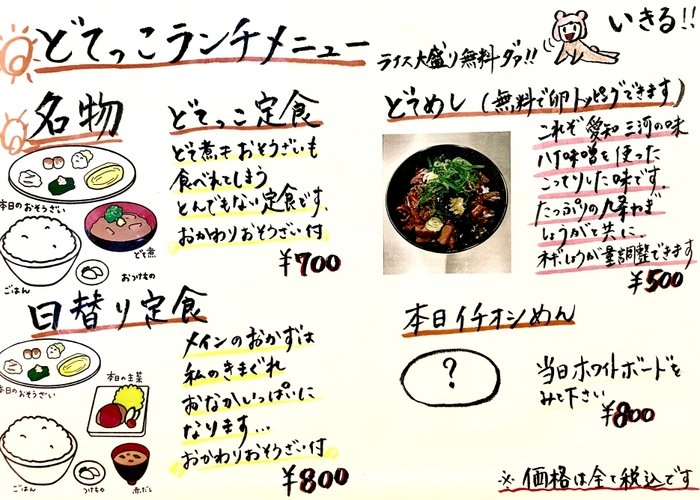 どてっこランチメニュー
ライス大盛り無料ダァ!!
いきる!!
名物
どてっこ定食
どて煮+ おそうざいも
食べれてしまう
とんでもない定食です。
おかわりおそうざい付
¥700
本日のおそうざい
ごはん
どて煮
おつけもの
日替り定食
メインのおかずは
私のきまぐれ
おなかいっぱいに
なります…
おかわりおそうざい付
¥800
本日のおそうざい
本日の主菜
ごはん
つけもの
赤だし
どてめし(無料で卵トッピングできます)
これぞ愛知三河の味
八丁味噌を使った
こってりいた味です。
たっぷりの九条ねぎ
しょうがと共に。
ネギしょうが量調整できます
¥500
本日イチオシめん
?
当日ホワイトボードを
みて下さい
¥800
※価格は全て税込です